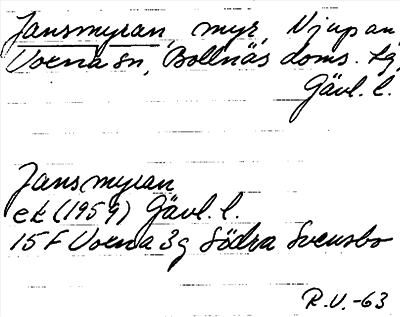 Jansmyran, myr, Njupan,
Voxna sn, Bollnäs doms. tg,
Gävl. l.
Jansmyran
ek (1959) Gävl. l.
15F Voxna 3g Södra Svensbo
R.V. -63